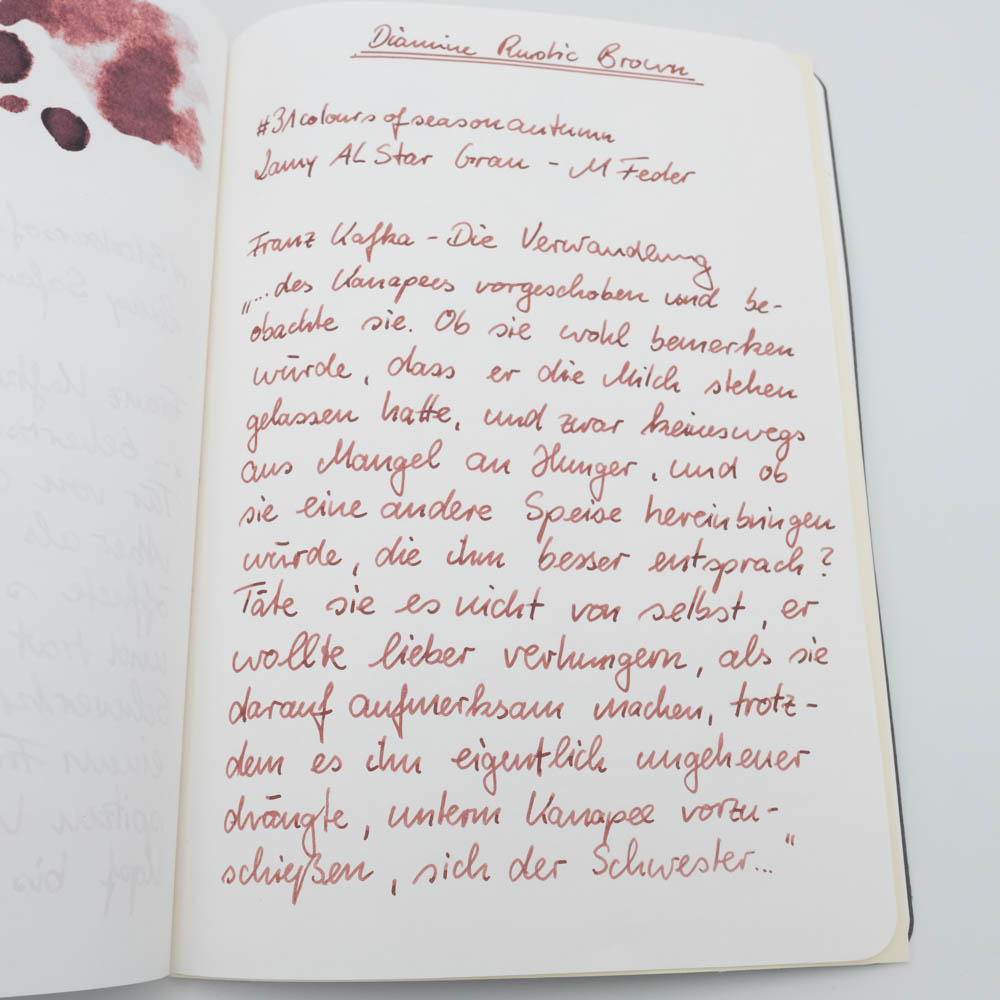 Diamine Rustic Brown
#31coloursofseasonautumn
Lamy AL Star Grau - M Feder
Franz Kafka - Die Verwandlung
"...des Kanapees vorgeschoben und be-
obachte sie. Ob sie wohl bemerken
würde, dass er die Milch stehen
gelassen hatte, und zwar keineswegs
aus Mangel an Hunger, und ob
sie eine andere Speise hereinbringen
würde, die ihm besser entsprach?
Täte sie es nicht von selbst, er
wollte lieber verhungern, als sie
darauf aufmerksam machen, trotz-
dem es ihn eigentlich ungeheuer
drängte, unterm Kanapee vorzu-
schießen, sich der Schwester..."